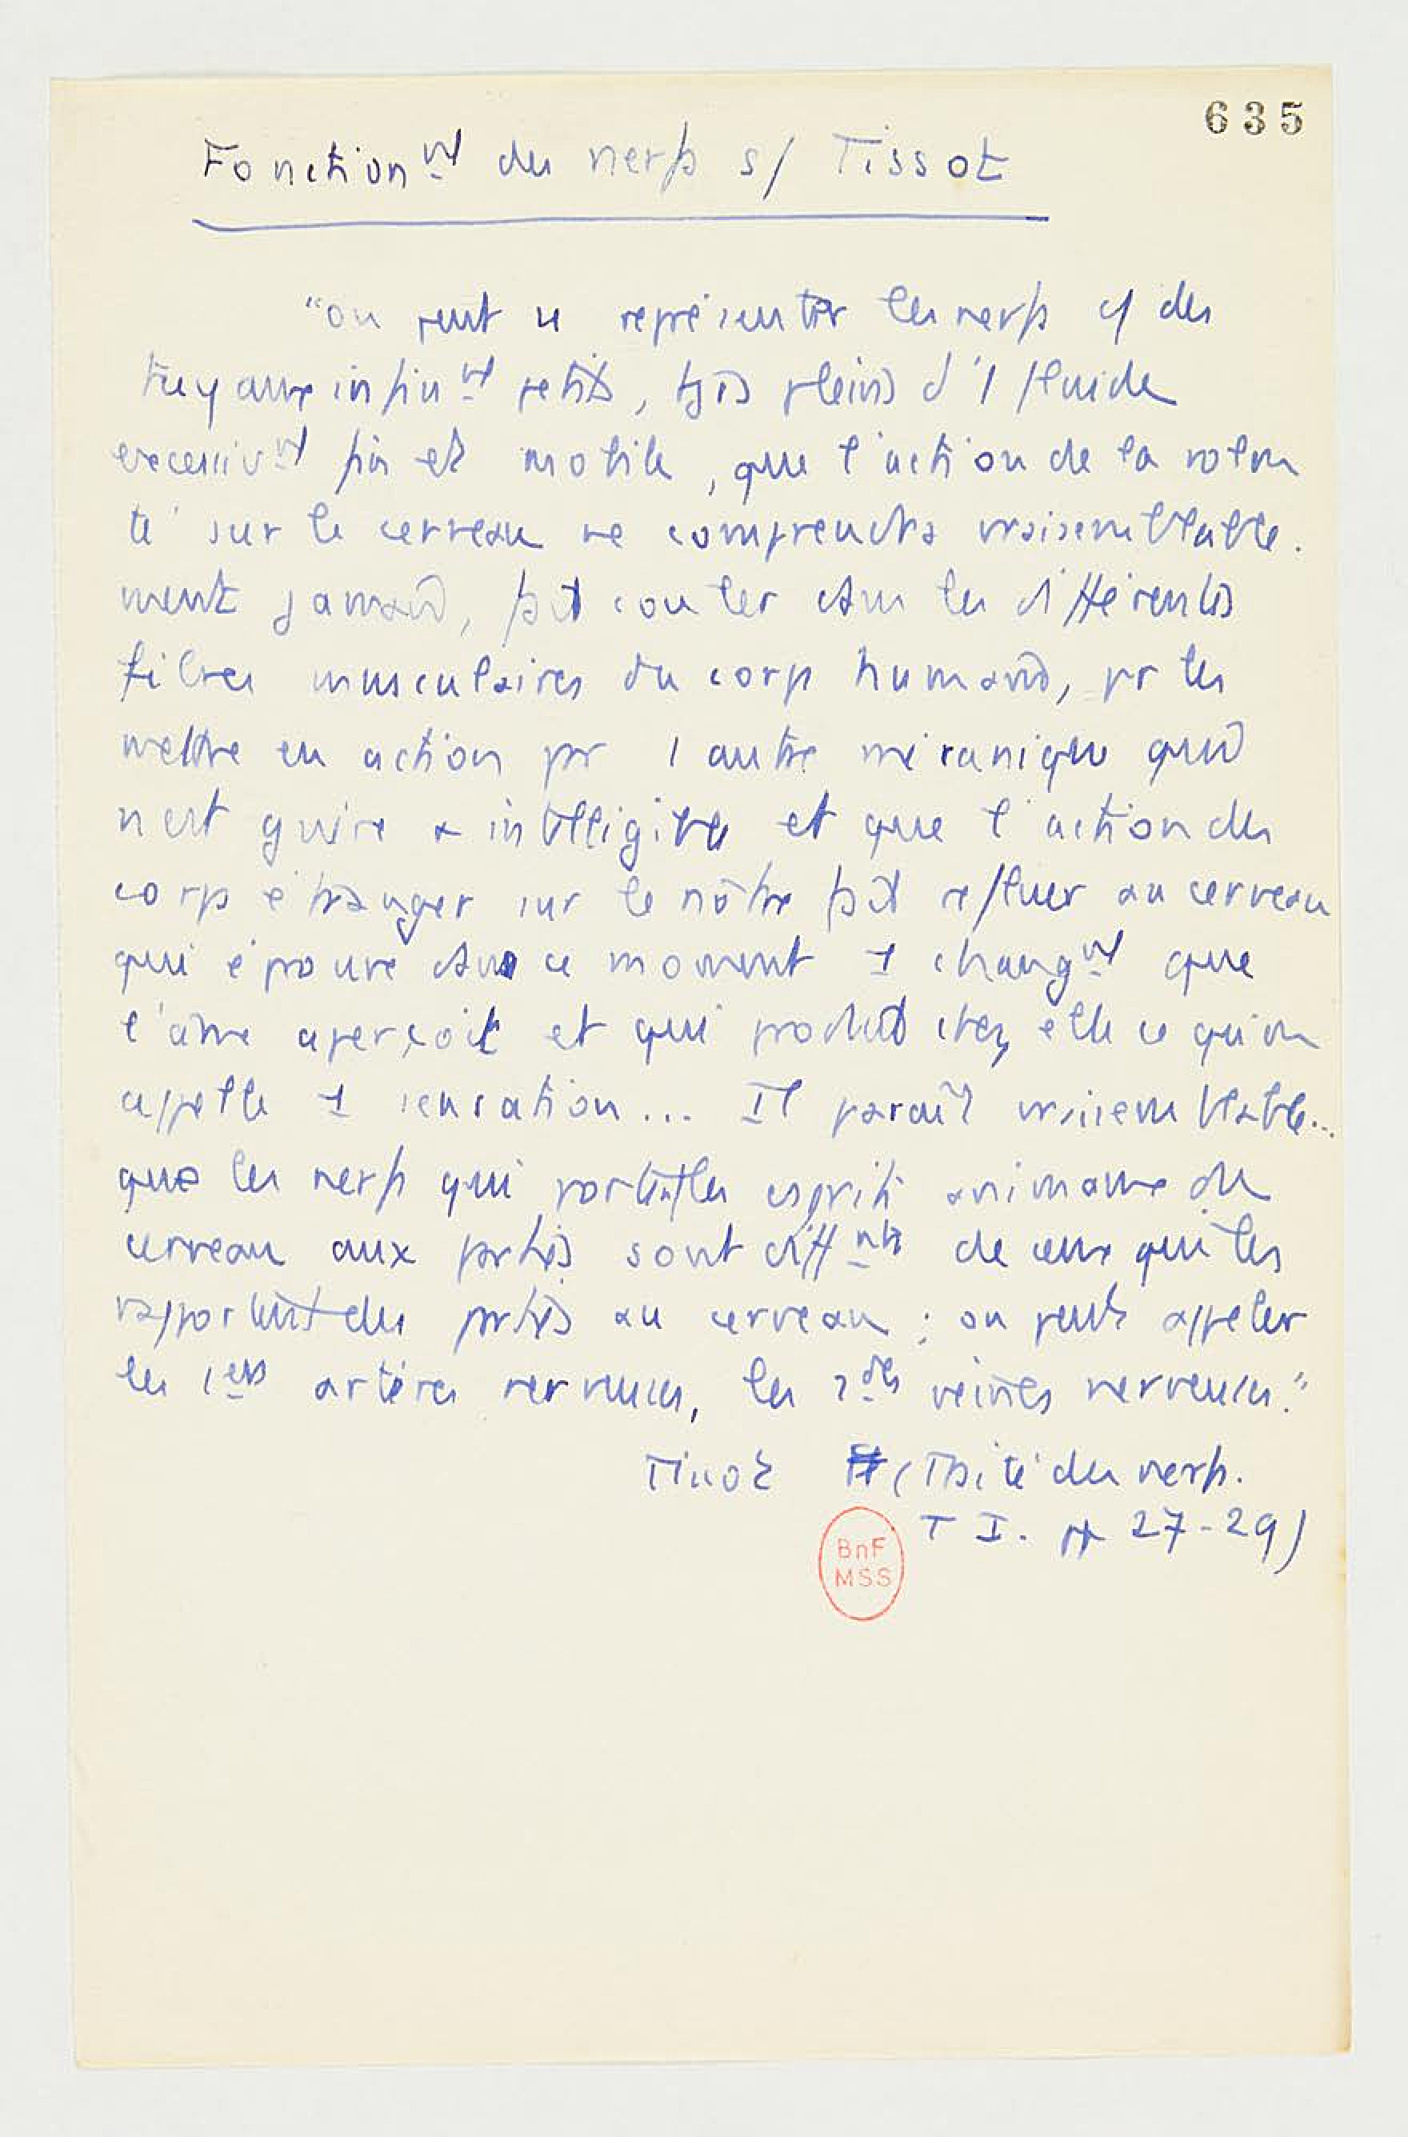 635
Fonctionnt des nerfs s/ Tissot
"on peut se représenter les nerfs c/ des
tuyaux infinnt petits, tjrs pleins d'1 fluide
excessivnt fin et mobile, que l'action de la volon
té sur le cerveau ne comprendra vraisemblable.
ment jamais, fait couler dans les différentes
fibres musculaires du corps humain, pr les
mettre en action par 1 autre mécanique qui
n'est guère + intelligible et que l'action des
corps étranger sur le nôtre fait refluer au cerveau
qui éprouve dans ce moment 1 changnt que
l'âme aperçoit et qui produit chez elle ce qu'on
appelle 1 sensation... Il paraît vraisemblable...
que les nerfs qui portent les esprits animaux du
cerveau aux parties sont diffnts de ceux qui les
rapportent des parties au cerveau ; on peut appeler
les 1ers artères nerveuses, les 2des veines nerveuses."
Tissot (Traité des nerfs.
T I. pp 27-29)
BnF
MSS